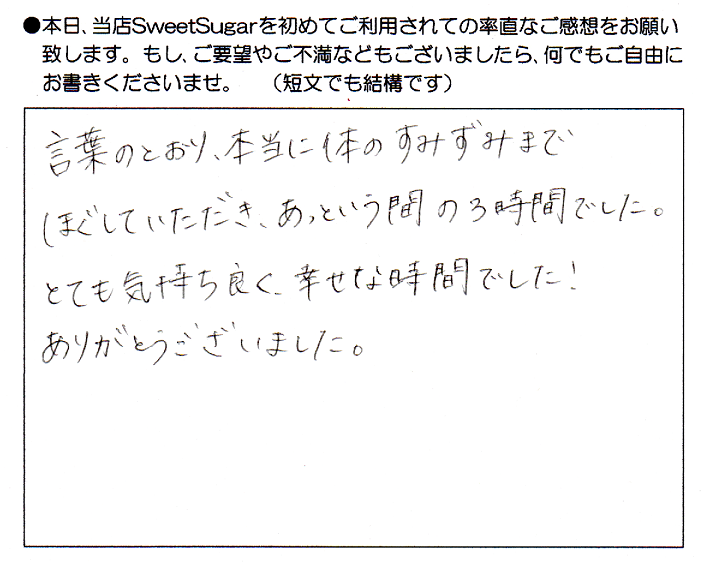 ●本日、当店SweetSugarを初めてご利用されての率直なご感想をお願い
致します。もし、ご要望やご不満などもございましたら、何でもご自由に
お書きくださいませ。　（短文でも結構です）
言葉のとおり、本当に体のすみずみまで
ほぐしていただき、あっという間の3時間でした。
とても気持ち良く、幸せな時間でした！
ありがとうございました。